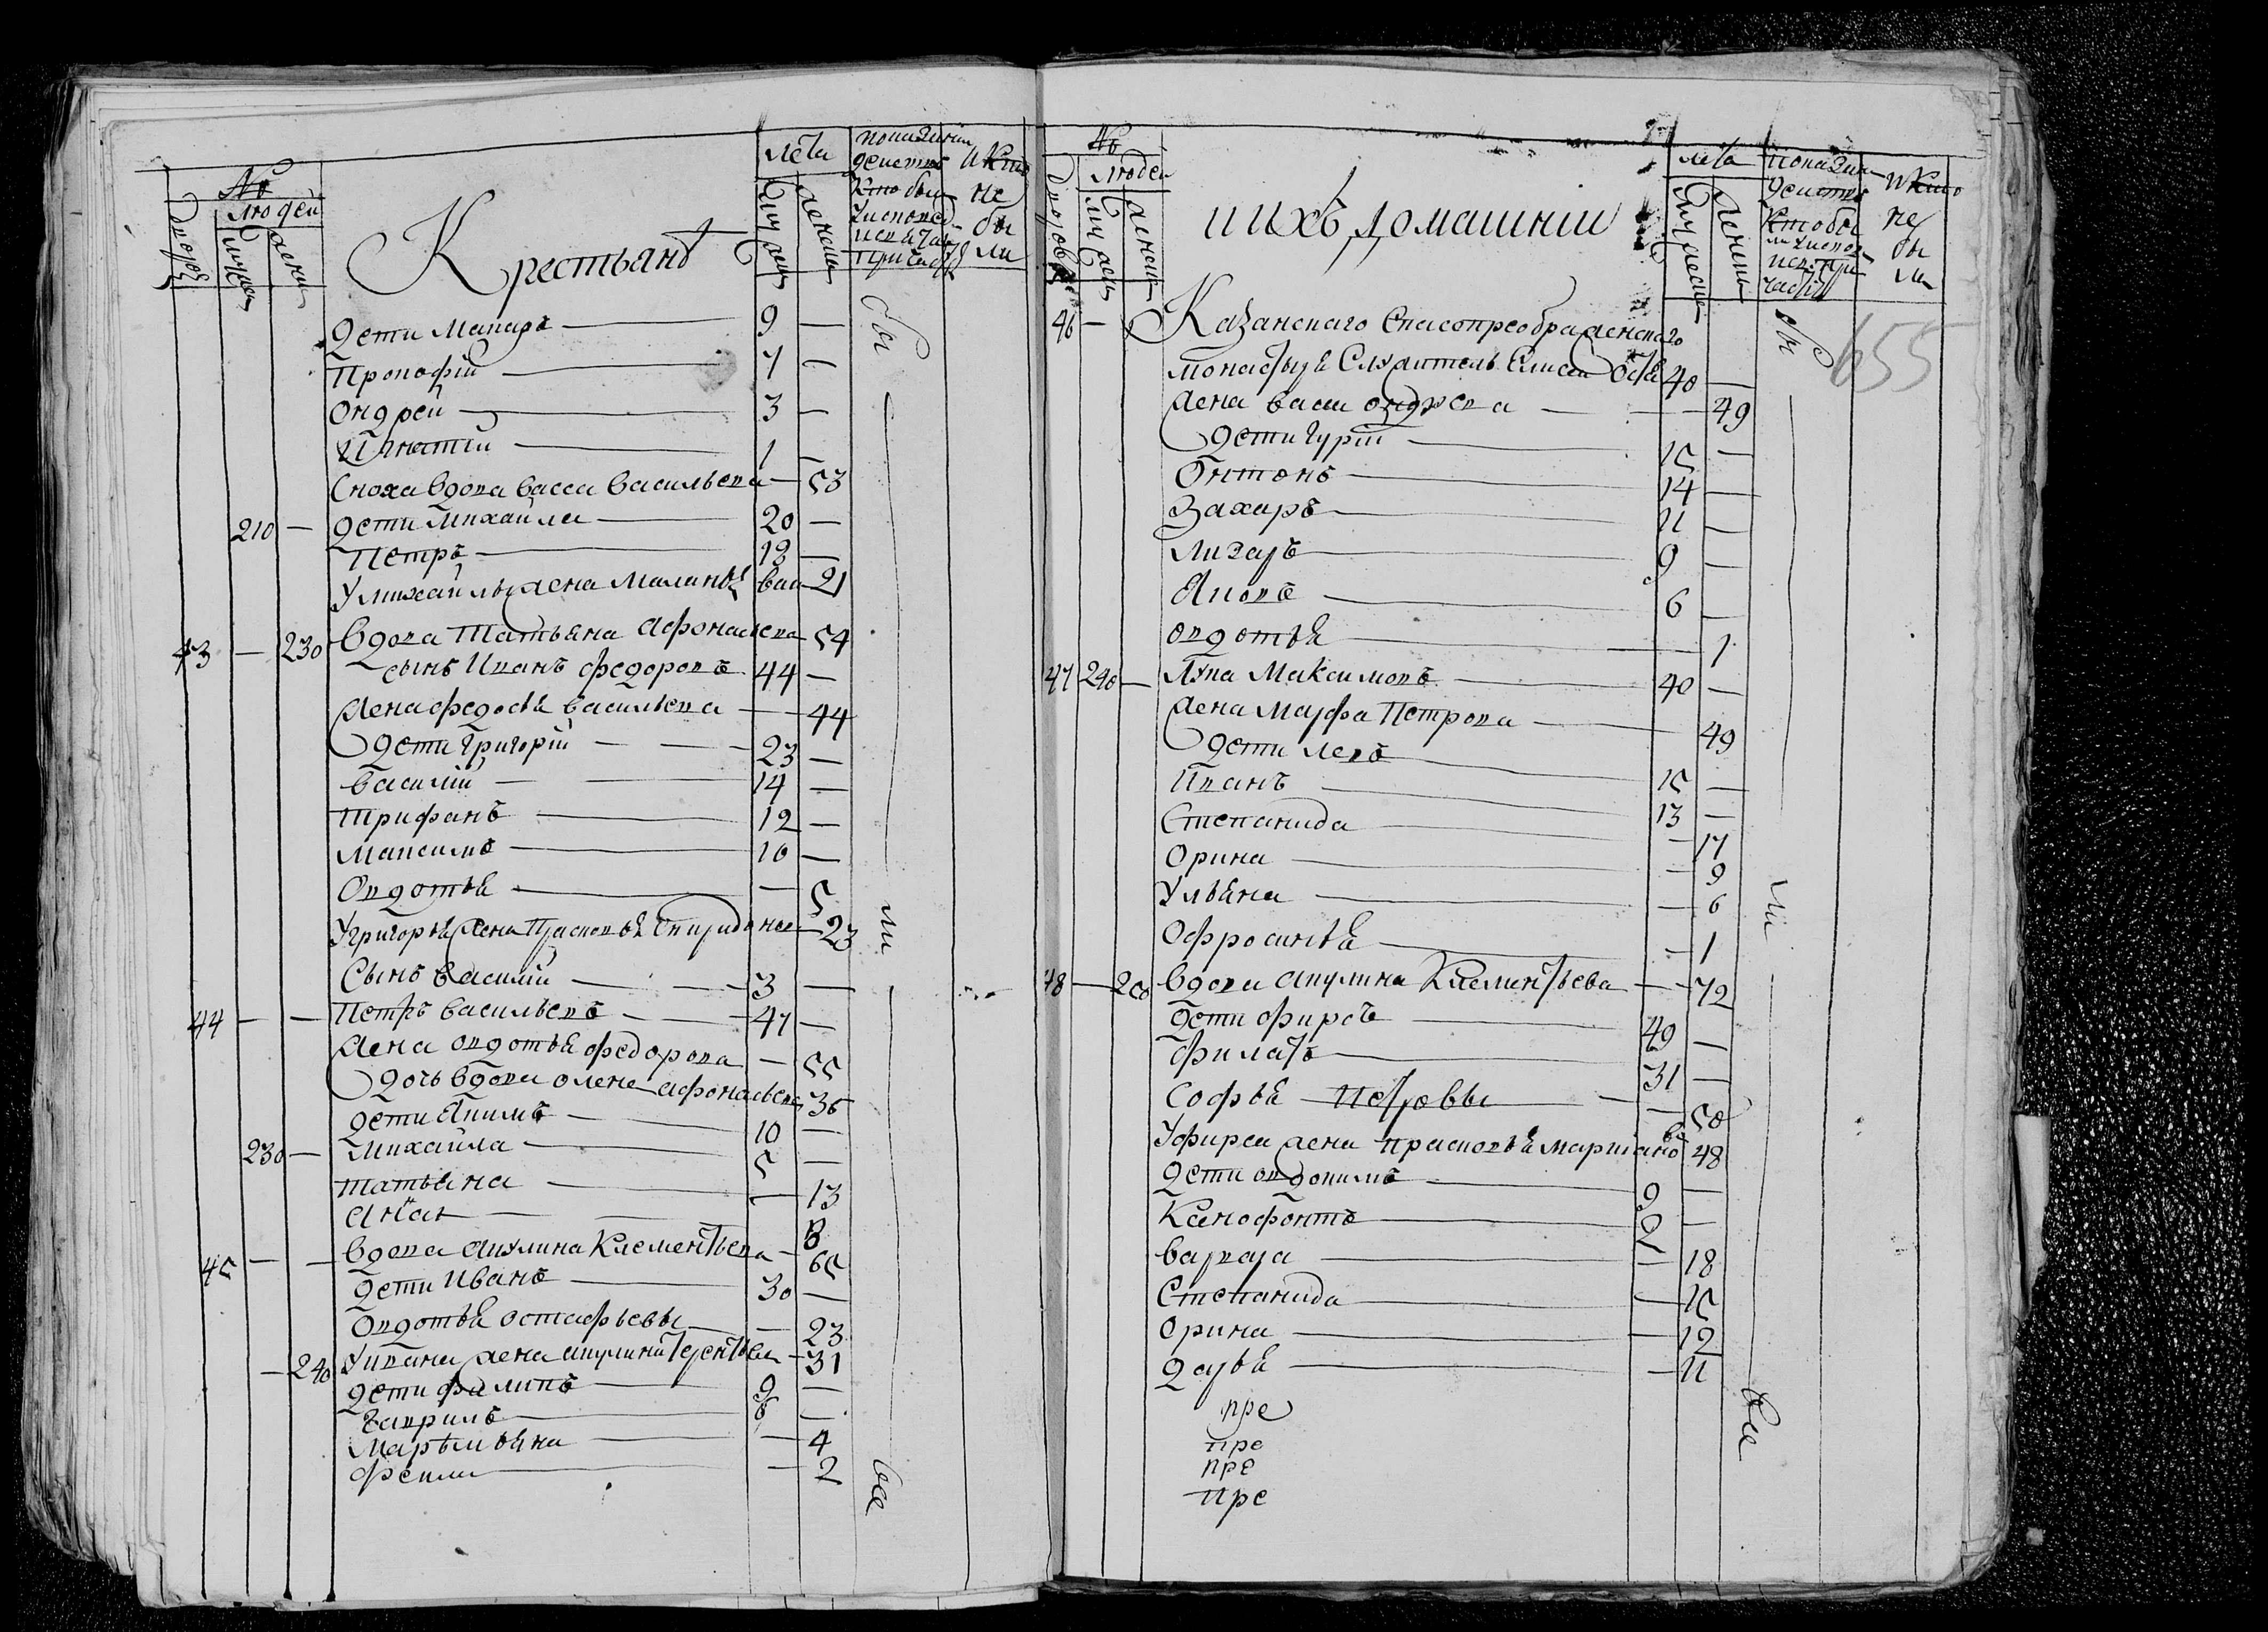 №
людей
дворовъ
мужеск
женск
Крестьянъ
лета
мужеск
женска
показание
действ
кто бы
у исповед
и св. тай
причаст
и кто
не
бы
ли
дети Макаръ — 9 —
Прокофiй — 7 —
Ондрей — 3 —
Игнатiй — 1 —
Сноха вдова васса васильева — 53
210 — дети Михайла — 20 —
Петръ — 13 —
У михайлы жена Маланья ива — 21
43 — 230 вдова Татьяна Афонасьева — 54
сынъ Иванъ федоровъ 44 —
жена федосья васильева — 44
дети григорiй — 23 —
василiй — 14 —
трифанъ — 12 —
Максимъ — 10 —
Овдотья — 5
У григорья жена Прасковья Спиридонов — 23
Сынъ василiй — 3 —
44 — — Петръ васильевъ — 47 —
жена овдотья федорова — 55
дочь вдова олена афонасьева 35
дети Якимъ — 10 —
230 — Михайла — 5 —
татьяна — 13
анна — 8
45 — — вдова акулина Клементьева — 65
дети иванъ — 30 —
Овдотья остафьевы — 23
— 240 У ивана жена акулина терентьева — 31
дети филипъ — 9 —
гаврилъ — 6 —
Марьямьяна — 4
фекла — 2
бы
ли
все
№
людей
дворовъ
мужеск
женск
и ихъ домашнiи
лета
мужеск
женски
показан
действ
кто бы
ли у испов
и св. при
част
и кто
не
бы
ли
655
46 — Казанскаго Спасопреображенскаго
монастыря Служитель Елисей 40 —
жена васса ондреева — 49
дети гурiй — 15 —
Онтонъ — 14 —
Захаръ — 11 —
Лизаръ — 9 —
Яковъ — 6 —
овдотья — 1
47 240 — Лука Максимовъ — 40 —
жена Марфа Петрова — 49
дети левъ — 15 —
Иванъ — 13 —
Степанида — 17
Орина — 9
Ульяна — 6
Офросинья — 1
48 — 250 вдова акулина Клементьева — 72
дети фирсъ — 49 —
филатъ — 31 —
Софья Петровы — 50
У фирса жена прасковья мартинова 48
дети овдокимъ — 9 —
Ксенофонтъ — 2 —
варвара — 18
Степанида — 15
Орина — 12
дарья — 11
пре
пре
пре
пре
бы
ли
все